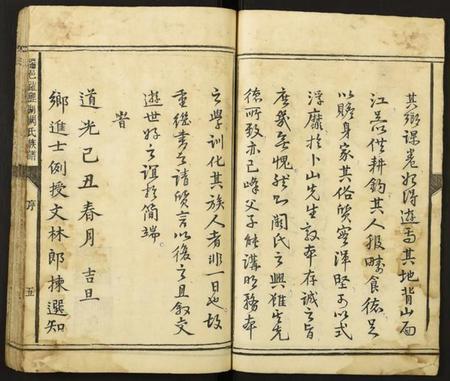 其鄉課卷如得遊焉其地背山面
江足以供耕釣其人服疇食德足
以贍身家其俗質實渾堅可以式
浮靡於卜山先生敦本存誠之旨
庶幾無愧然則闕氏之興雖其先
德所致亦已峰父子能講明務本
之學訓化其族人者非一日也故
重繼書之請質言以復之且叙交
遊世好之誼於簡端
旹
道光己丑春月 吉旦
鄉進士例授文林郎揀選知
氏族譜
序
五